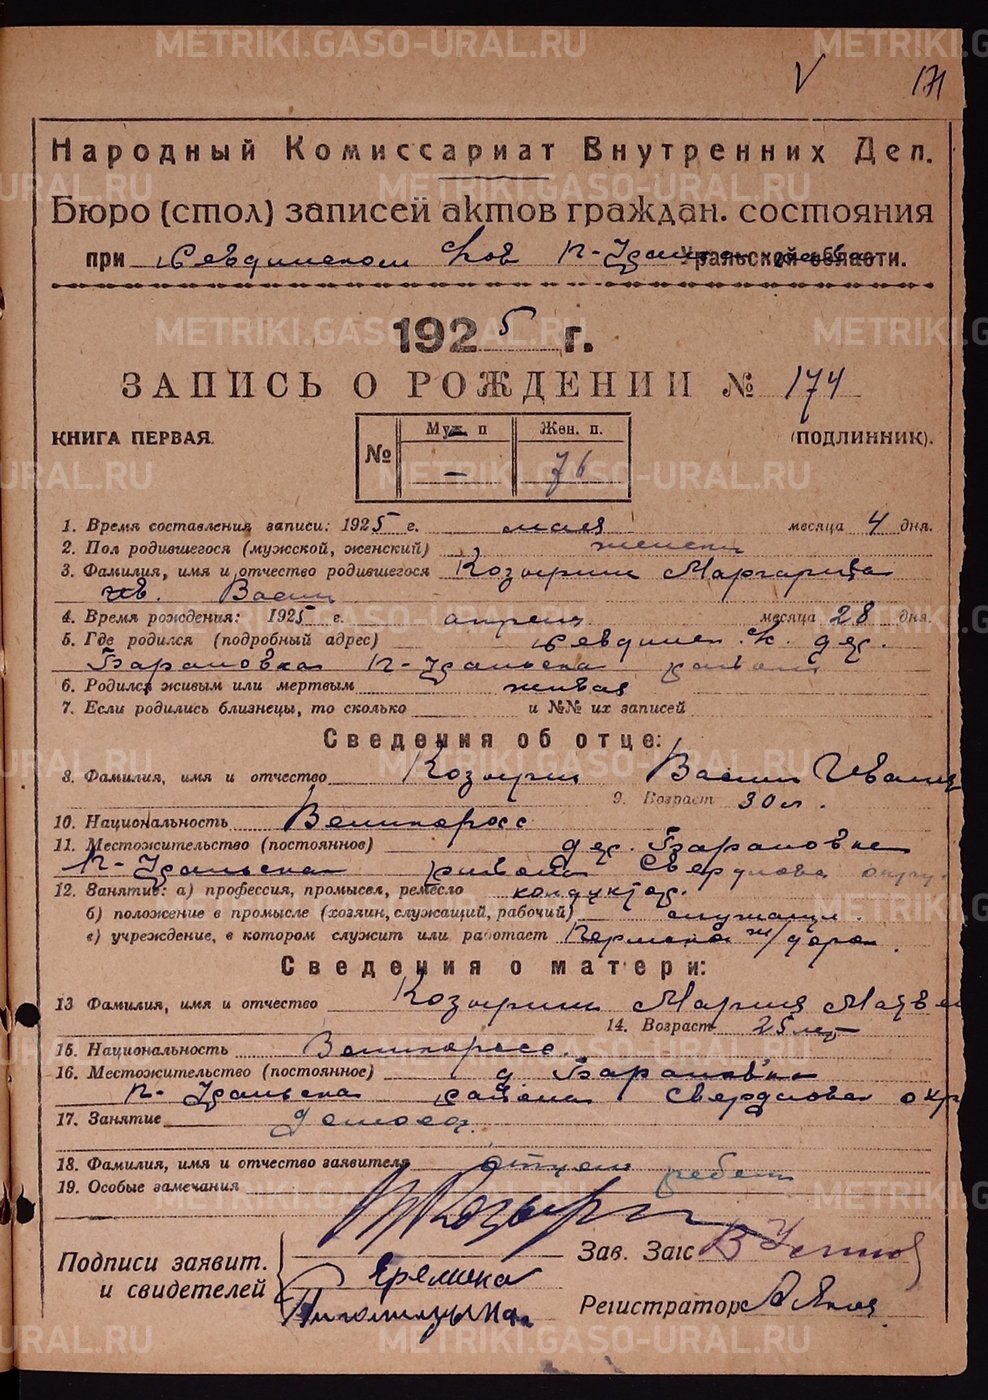 171
Народный Комиссариат Внутренних Дел.
Бюро (стол) записей актов граждан. состояния
при Ревдинском П-Уральской области.
1925 г.
ЗАПИСЬ О РОЖДЕНИИ № 174
КНИГА ПЕРВАЯ. (ПОДЛИННИК).
№ Муж. п Жен. п.
— 76
1. Время составления записи: 1925 г. мая месяца 4 дня.
2. Пол родившегося (мужской, женский) женски
3. Фамилия, имя и отчество родившегося Козырин Маргарита
Васил
4. Время рождения: 1925 г. апреля месяца 28 дня.
5. Где родился (подробный адрес) Ревдинск. дер.
Барановка П-Уральска района
6. Родился живым или мертвым живая
7. Если родились близнецы, то сколько и №№ их записей
Сведения об отце:
8. Фамилия, имя и отчество Козырин Васил Иванов
9. Возраст 30 л.
10. Национальность Великоросс
11. Местожительство (постоянное) дер. Барановке
П-Уральска района Свердловск округ.
12. Занятие: а) профессия, промысел, ремесло кондуктор.
б) положение в промысле (хозяин, служащий, рабочий) служащи.
в) учреждение, в котором служит или работает Пермская ж/дорог.
Сведения о матери:
13 Фамилия, имя и отчество Козырина Мария Матвеев
14. Возраст 25 лет
15. Национальность Великоросс.
16. Местожительство (постоянное) д. Барановка
П-Уральска района Свердловск окр
17. Занятие домохоз.
18. Фамилия, имя и отчество заявителя отцом ребен
19. Особые замечания
Подписи заявит. Козырин Зав. Загс
и свидетелей Еремина
Регистратор
METRIKI.GASO-URAL.RU